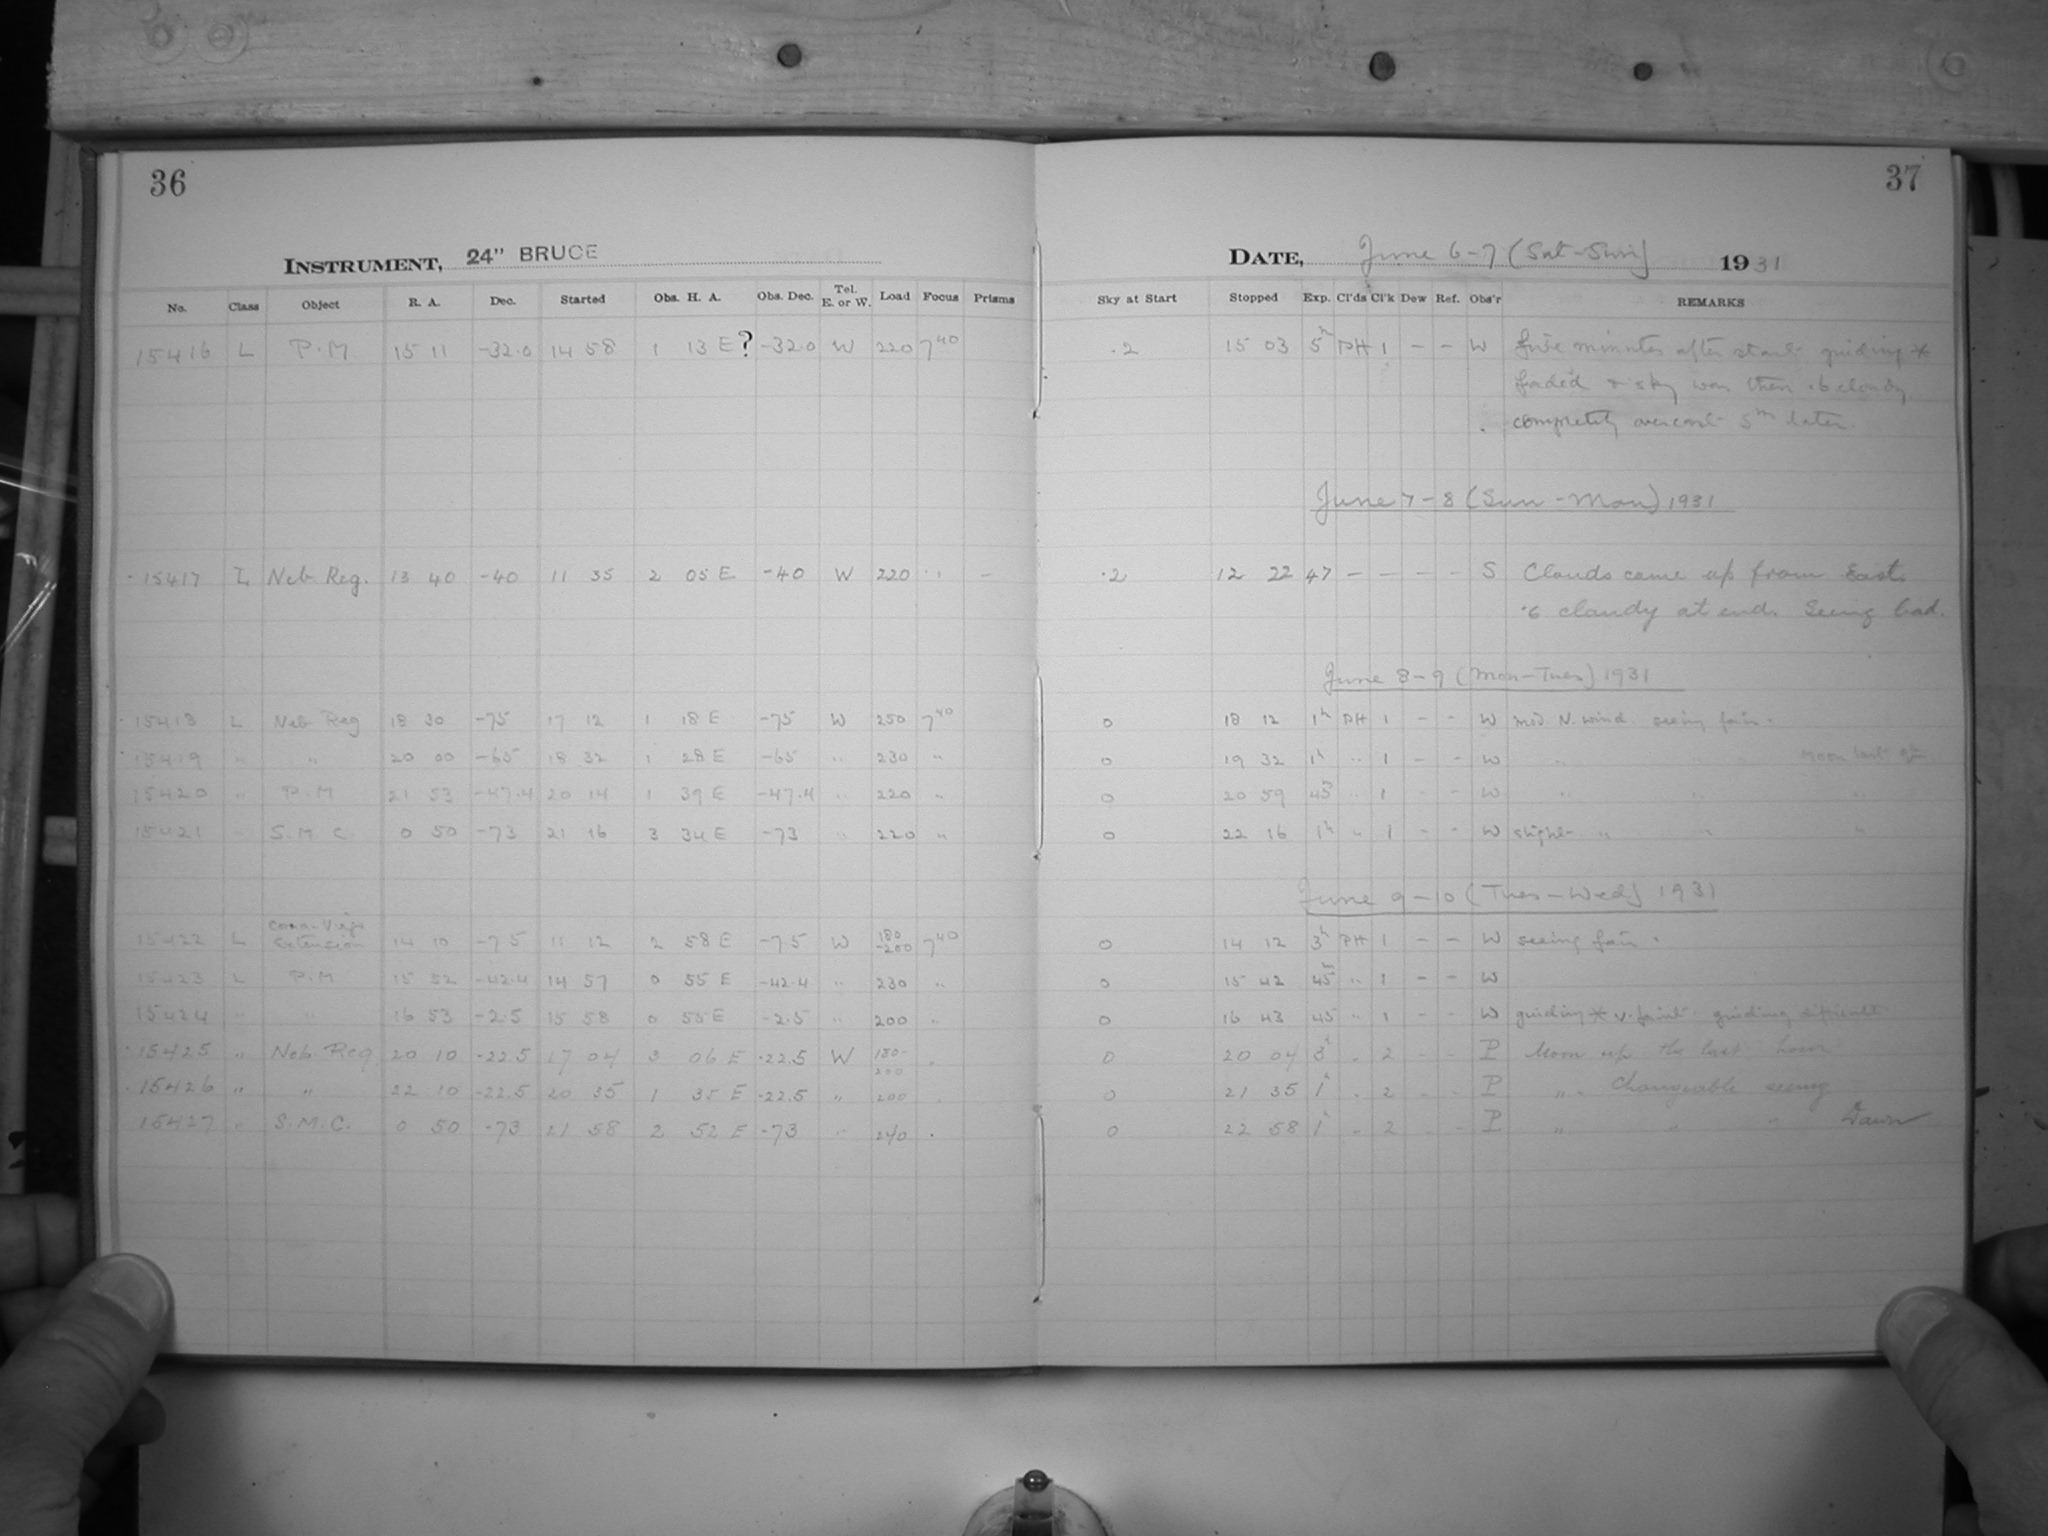 36
37
INSTRUMENT, 24" BRUCE
DATE, June 6-7 (Sat-Sun) 1931
No. Class Object R. A. Dec. Started Obs. H. A. Obs. Dec. Tel. E. or W. Load Focus Prisms Sky at Start Stopped Exp. Cl'ds Cl'k Dew Ref. Obs'r REMARKS
15416 L P.M 15 11 -32.0 14 58 1 13 E? -32.0 W 220 7 40 .2 15 03 5 PH 1 - - W five minutes after start guiding *
faded & sky was then .6 cloudy
completely overcast 5m later.
June 7-8 (Sun-Mon) 1931
15417 L Neb. Reg. 13 40 -40 11 35 2 05 E -40 W 220 " - .2 12 22 47 - - - - S Clouds came up from East.
.6 cloudy at end. Seeing bad.
June 8-9 (Mon-Tues) 1931
15418 L Neb Reg 18 30 -75 17 12 1 18 E -75 W 250 7 40 0 18 12 1h PH 1 - - W mod. N. wind. seeing fair.
15419 " " 20 00 -65 18 32 1 28 E -65 " 230 " 0 19 32 1h " 1 - - W " " Moon last qtr
15420 " P.M 21 53 -47.4 20 14 1 39 E -47.4 " 220 " 0 20 59 45 " 1 - - W " " "
15421 " S.M.C. 0 50 -73 21 16 3 34 E -73 " 220 " 0 22 16 1h " 1 - - W slight " " "
June 9-10 (Tues-Wed) 1931
15422 L Coma-Virgo Extension 14 10 -7.5 11 12 2 58 E -7.5 W 180-200 7 40 0 14 12 3h PH 1 - - W seeing fair.
15423 L P.M 15 52 -42.4 14 57 0 55 E -42.4 " 230 " 0 15 42 45m " 1 - - W
15424 " " 16 53 -2.5 15 58 0 55 E -2.5 " 200 " 0 16 43 45 " 1 - - W guiding * v. faint guiding difficult
15425 " Neb. Reg 20 10 -22.5 17 04 3 06 E -22.5 W 180-200 " 0 20 04 3h " 2 - - P Moon up the last hour
15426 " " 22 10 -22.5 20 35 1 35 E -22.5 " 200 " 0 21 35 1h " 2 - - P " Changeable seeing
15427 " S.M.C. 0 50 -73 21 58 2 52 E -73 " 240 " 0 22 58 1h " 2 - - P " " " Dawn